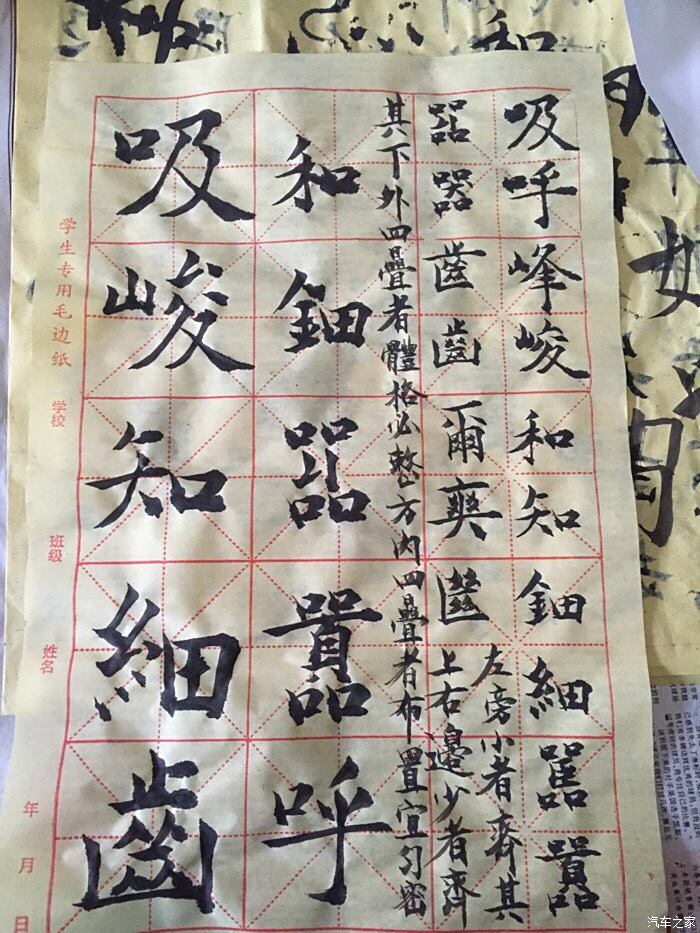 吸呼峰峻和知鈿細囂
左旁小者齊其
器齒齒爾爽
上右邊少者齊
其下外四疊者體格必整方内四疊者布置宜勻密
和鈿囂呼
吸峻知細齒
学生专用毛边纸
学校
班级
姓名
年月日
汽车之家